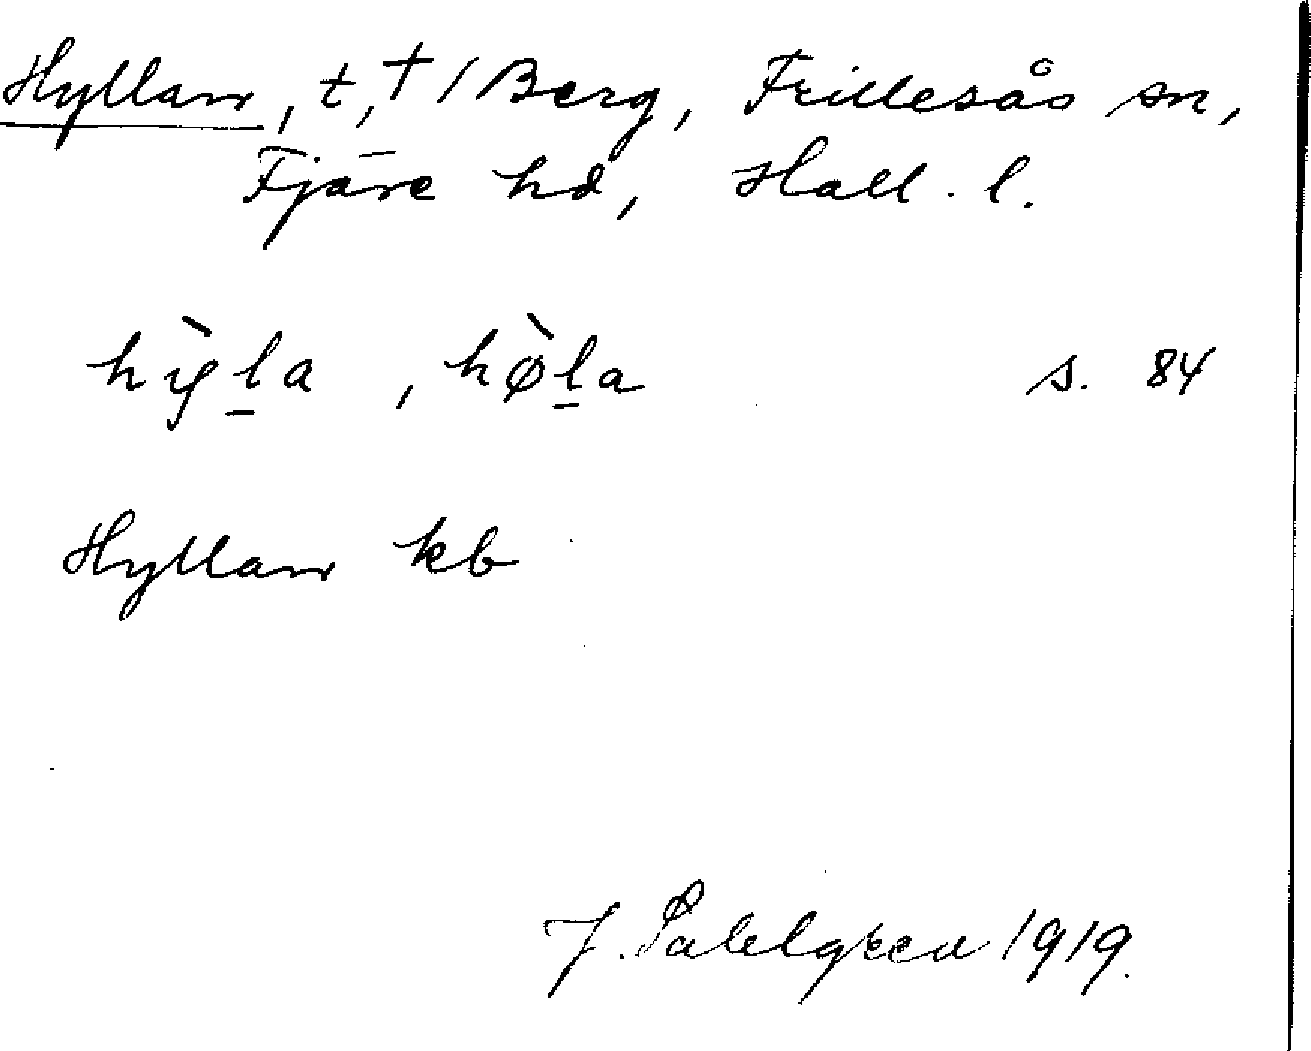 Hyllan, t, † / Berg, Frillesås sn,
Fjäre hd, Hall. l.
hỳl̠a , hø̀l̠a s. 84
Hyllan kb
J. Sahlgren 1919.